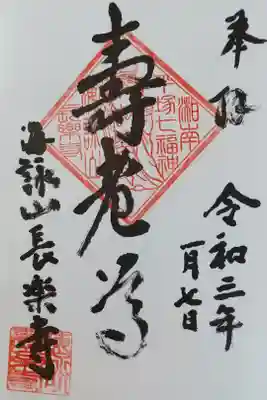 奉拝
令和三年
一月七日
湘南
平塚七福神
壽老尊
海詠山長楽寺